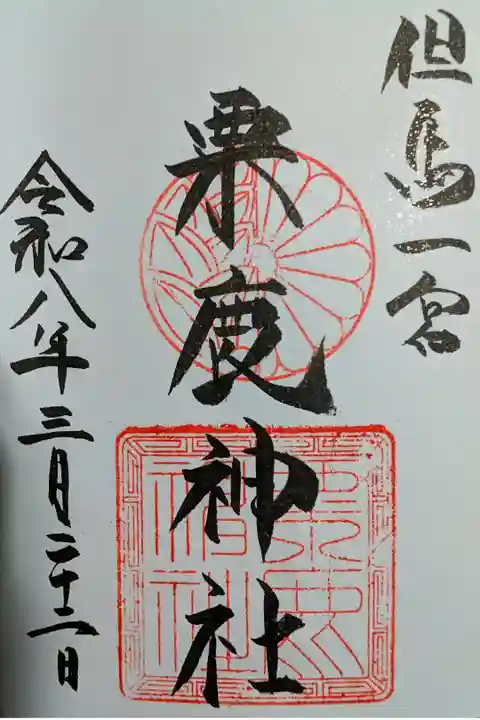 但馬一宮
粟鹿神社
令和八年三月二十二日
粟鹿
神社